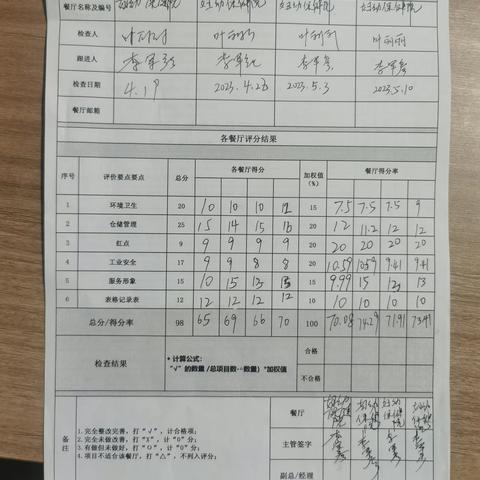 餐厅名称及编号 妇幼保健院 妇幼保健院 妇幼保健院 妇幼保健院
检查人 叶丽丽 叶丽丽 叶丽丽 叶丽丽
跟进人
检查日期 4.19 2023.4.26 2023.5.3 2023.5.10
餐厅邮箱
各餐厅评分结果
序号 评价要点要点 总分 各餐厅得分 加权值(%) 餐厅得分率
1 环境卫生 20 10 10 10 12 15 7.5 7.5 7.5 9
2 仓储管理 25 15 14 15 16 20 12 11.2 12 12
3 红点 9 9 9 9 9 20 20 20 20 20
4 工业安全 17 9 9 8 8 20 10.59 10.59 9.41 9.41
5 服务形象 15 10 15 13 13 15 9.99 15 13 13
6 表格记录表 12 12 12 12 12 10 10 10 10 10
总分/得分率 98 65 69 66 70 100 70.08 74.29 71.91 73.41
检查结果
• 计算公式:
"√" 的数量 /总项目数-△数量）*加权值
合格
不合格
备注
1.完全整改完善，打"√"，计合格项;
2.完全未做改善，打"X"，计"0"分;
3.有做但未做好，打"O"，计"0"分;
4.项目不适合该餐厅，打"△"，不列入评分;
餐厅 妇幼保健院 妇幼保健院 妇幼保健院 妇幼保健院
主管签字
副总/经理